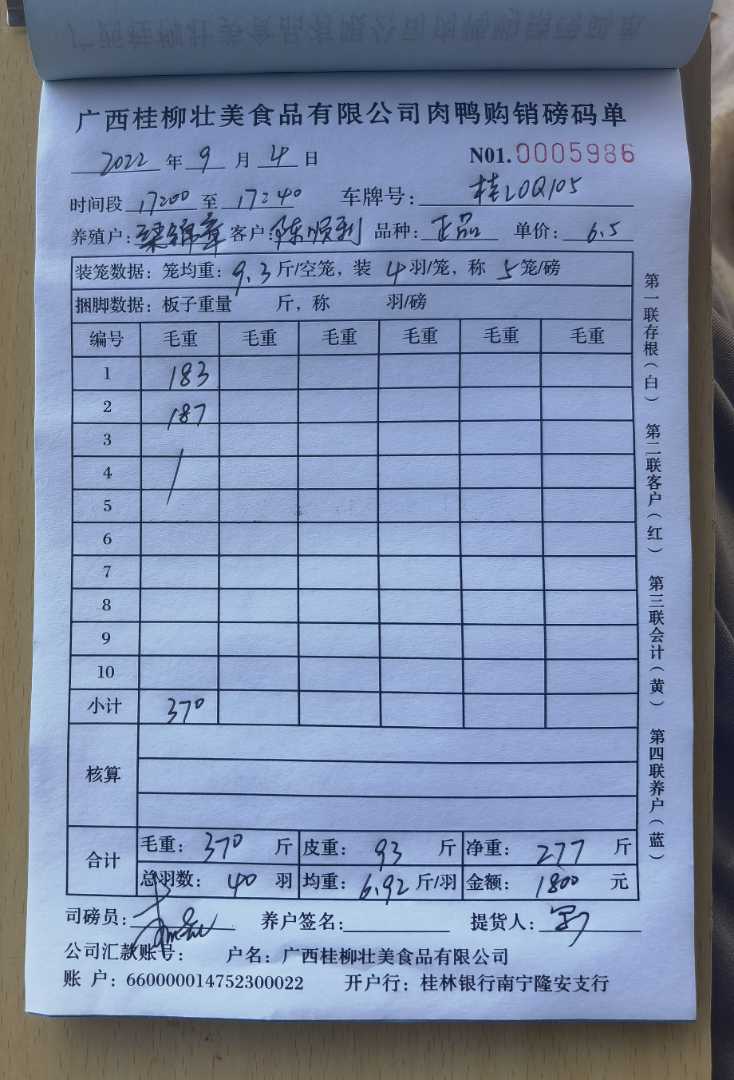 广西桂柳壮美食品有限公司肉鸭购销磅码单
2022 年 9 月 4 日 N01.0005986
时间段 17:00 至 17:40 车牌号: 桂L0Q105
养殖户: 梁锦章 客户: 陈顺利 品种: 正品 单价: 6.5
装笼数据: 笼均重: 9.3 斤/空笼, 装 4 羽/笼, 称 5 笼/磅
捆脚数据: 板子重量 斤, 称 羽/磅
编号 毛重 毛重 毛重 毛重 毛重 毛重
1 183
2 187
3
4
5
6
7
8
9
10
小计 370
核算
合计 毛重: 370 斤 皮重: 93 斤 净重: 277 斤
总羽数: 40 羽 均重: 6.92 斤/羽 金额: 1800 元
司磅员: 养户签名: 提货人:
公司汇款账号: 户名: 广西桂柳壮美食品有限公司
账 户: 660000014752300022 开户行: 桂林银行南宁隆安支行
第一联存根(白) 第二联客户(红) 第三联会计(黄) 第四联养户(蓝)